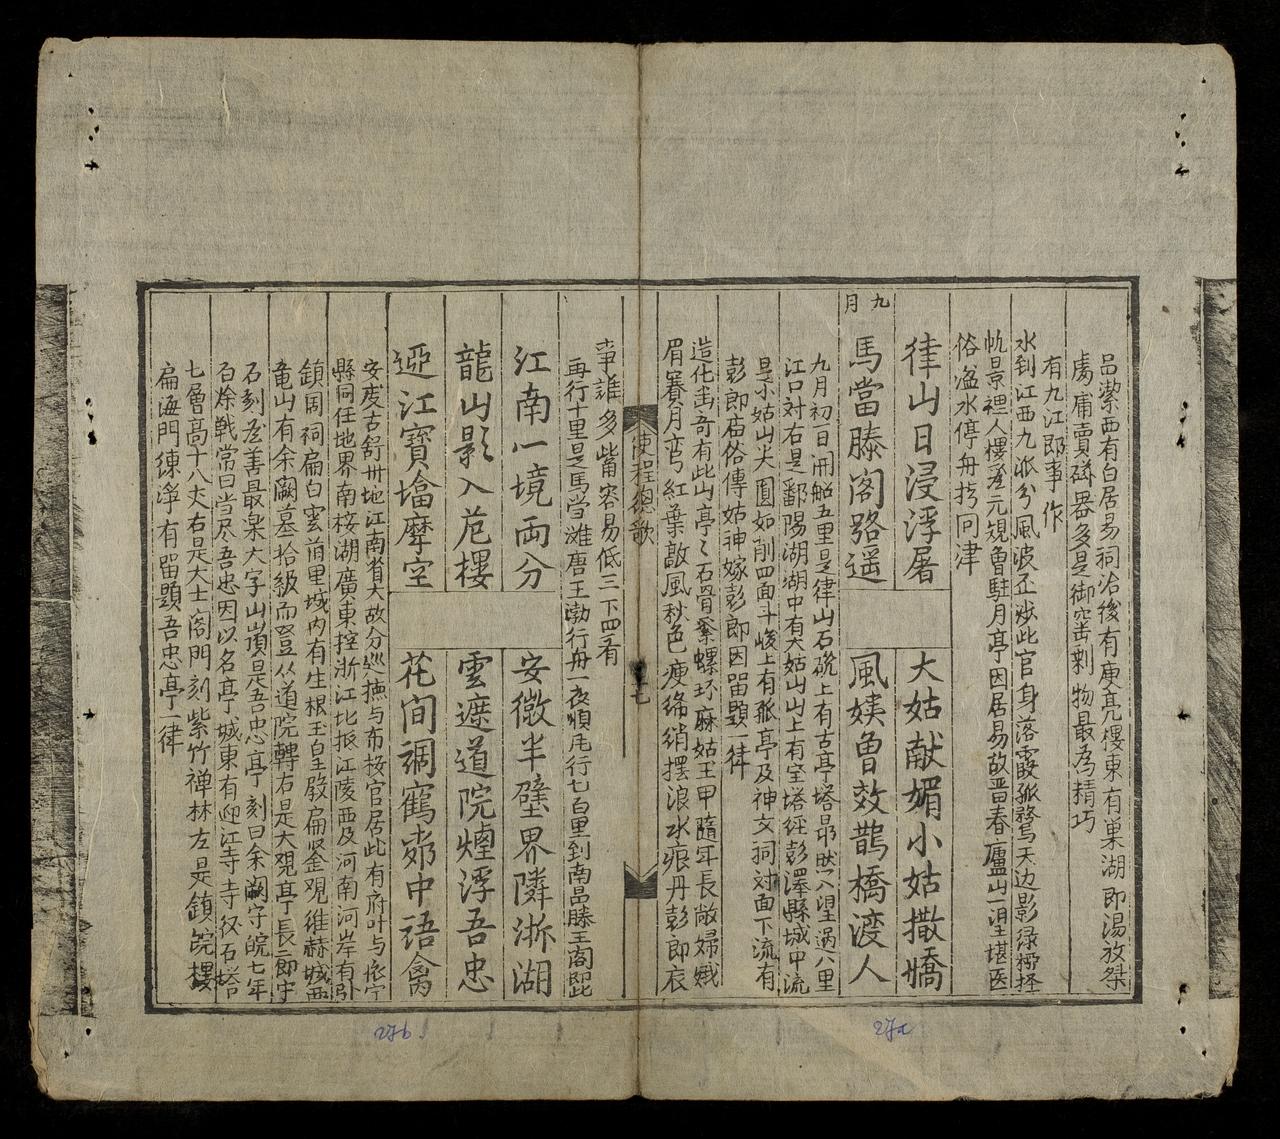 呂蒙西有白居易祠治後有庾亮樓東有巢湖即湯放桀
處庸賣磁器多是御窑製物最為精巧
有九江即事作
水到江西九派兮風波丕涉此官身落霞孤鶩天边影绿
帆景裡人樓登元規曾駐月亭因居易故晋春廬山一望堪医
俗湓水停舟問津
律山日浸浮屠
大姑献媚小姑撒嬌
九月
馬當滕阁路遥
風姨曾效鵲橋渡人
九月初一日開船五里是律山石磯上有古亭塔昂然入望過八里
江口对右是鄱陽湖湖中有大姑山山上有宝塔经彭澤縣城中流
是小姑山尖圓如削四面斗峻上有孤亭及神女祠对面下流有
彭郎庙俗傳姑神嫁彭郎因留題一律
造化雋奇有此山亭〻石骨緊螺环麻姑王甲隨耳長敞婦娥
眉賽月弯紅葉敲風秋色瘦綺綃擺浪水痕丹彭郎衣
使程總歌
七
事誰多訾容易低三下四看
再行十里是馬當滩唐王勃行舟一夜順风行七百里到南昌滕王阁即此
江南一境両分
安徽半壁界隣浙湖
龍山影入苑樓
雲遮道院煙浮吾忠
迎江寳墖摩空
花间調鶴郊中語禽
安庆古舒州地江南省大故分巡撫与布按官居此有府叶与怀宁
縣同任地界南接湖廣東控浙江北抵江陵西及河南河岸有引
鎮周祠扁白雲前里城内有生根玉皇殿扁竖观維赫城西
竜山有余闕墓拾級而登从道院轉右是大观亭長三郎宇
石刻為善最楽大字山頂是吾忠亭刻曰余闕守皖七年
百餘戦常曰当尽吾忠因以名亭城東有迎江寺寺後石塔
七層高十八丈右是大士阁門刻紫竹禅林左是鎮皖樓
扁海門練淨有留題吾忠亭一律
27b
27a